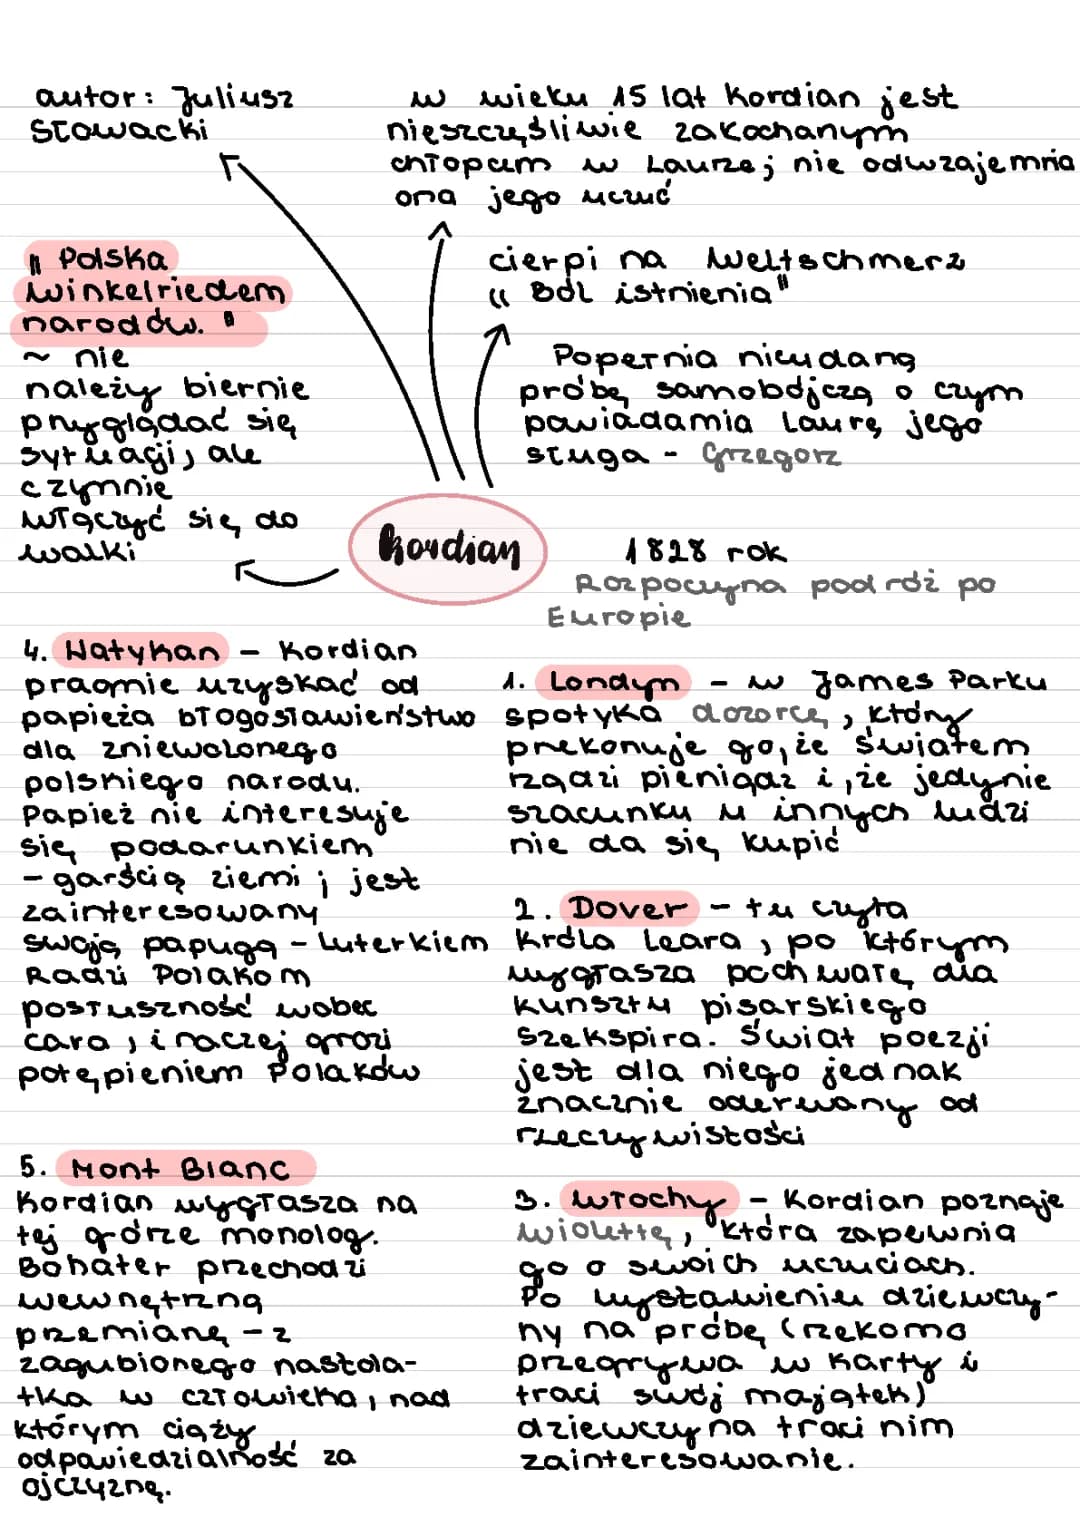 autor: Juliusz
Słowacki
w wieku 15 lat Kordian jest
nieszczęśliwie zakochanym
chłopcem w Laurze; nie odwzajemnia
ona jego uczuć
cierpi na Weltschmerz
"Ból istnienia"
Popełnia nieudaną
próbę samobójczą o czym
powiadamia Laurę jego
sługa - Grzegorz
"Polska
Winkelriedem
narodów."
~ nie
należy biernie
przyglądać się
sytuacji, ale
czynnie
włączyć się do
walki
Kordian
1828 rok
Rozpoczyna podróż po
Europie
1. Londyn - w James Parku
spotyka dozorcę, który
przekonuje go, że światem
rządzi pieniądz i, że jedynie
szacunku u innych ludzi
nie da się kupić
2. Dover - tu czyta
Króla Leara, po którym
wygłasza pochwałę dla
kunsztu pisarskiego
Szekspira. Świat poezji
jest dla niego jednak
znacznie oderwany od
rzeczywistości
3. Włochy - Kordian poznaje
Wiolettę, która zapewnia
go o swoich uczuciach.
Po wystawieniu dziewczy-
ny na próbę (rzekomo
przegrywa w karty i
traci swój majątek)
dziewczyna traci nim
zainteresowanie.
4. Watykan - Kordian
pragnie uzyskać od
papieża błogosławieństwo
dla zniewolonego
polskiego narodu.
Papież nie interesuje
się podarunkiem
- garścią ziemi; jest
zainteresowany
swoją papugą - Luterkiem
Radzi Polakom
posłuszność wobec
cara, inaczej grozi
potępieniem Polaków
5. Mont Blanc
Kordian wygłasza na
tej górze monolog.
Bohater przechodzi
wewnętrzną
przemianę - z
zagubionego nastola-
tka w człowieka, nad
którym ciąży
odpowiedzialność za
ojczyznę.